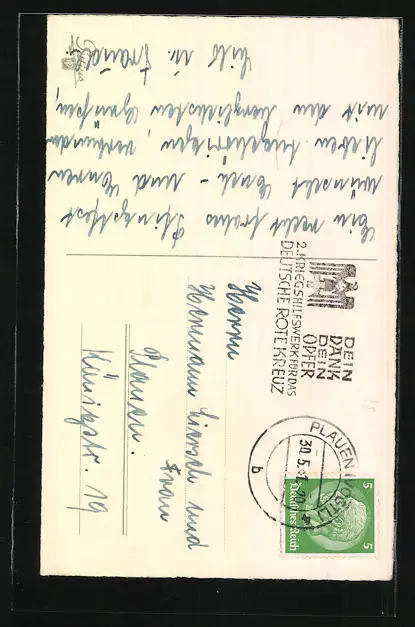 Ein recht frohes Pfingstfest
wünscht Euch - und Euren
lieben Angehörigen, verbunden
mit den herzlichsten Grüßen,
Willi u. Frauchen
DEIN
DANK
DEIN
OPFER
2. KRIEGSHILFSWERK FÜR DAS
DEUTSCHE ROTE KREUZ
PLAUEN (VOGTL)
30.5.41.20
b
5 5
Deutsches Reich
Herrn
Hermann Liersch und
Frau
Plauen.
Königstr. 19